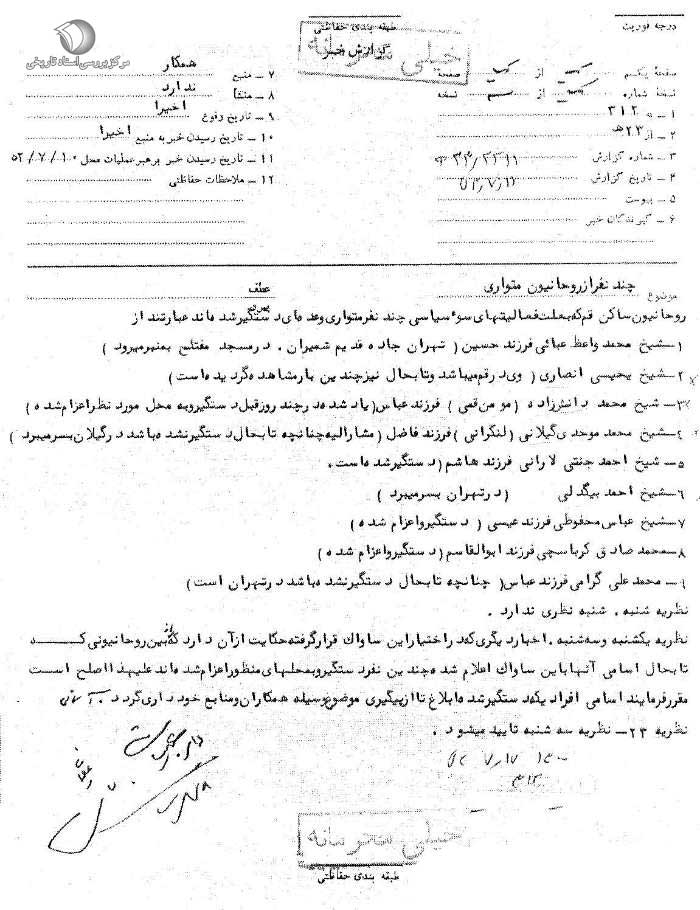 مرکز بررسی اسناد تاریخی
درجه فوریت
طبقه بندی حفاظتی
گزارش خبر
خیلی محرمانه
صفحهٔ یکم از یک صفحه
نسخهٔ شماره از نسخه
۱ - به ۳۱۲
۲ - از ۲۳ه‍
۳ - شماره گزارش
۴ - تاریخ گزارش
۵ - پیوست
۶ - گیرندگان خبر
۷ - منبع همکار
۸ - منشأ ندارد
۹ - تاریخ وقوع اخیرا
۱۰ - تاریخ رسیدن خبر به منبع اخیرا
۱۱ - تاریخ رسیدن خبر برهبر عملیات محل ۵۲/۷/۱۰
۱۲ - ملاحظات حفاظتی
موضوع چند نفر از روحانیون متواری
عطف
روحانیون ساکن قم که بعلت فعالیتهای سوء سیاسی چند نفر متواری و عده ای دستگیر شده اند عبارتند از
۱- شیخ محمد واعظ عبائی فرزند حسین ( تهران جاده قدیم شمیران . در مسجد مفتلح بمنبر میرود )
۲- شیخ یحیسی انصاری ( وی در قم میباشد و تا بحال نیز چندین بار مشاهده گردیده است )
۳- شیخ محمد دانش زاده ( مومن قمی ) فرزند عباس ( یاد شده در چند روز قبل دستگیر و به محل مورد نظر اعزام شده )
۴- شیخ محمد موحدی گیلانی ( لنگرانی ) فرزند فاضل ( مشارالیه چنانچه تا بحال دستگیر نشده باشد در گیلان بسر میبرد )
۵- شیخ احمد جنتی لارانی فرزند هاشم ( دستگیر شده است .
۶- شیخ احمد بیگدلی ( در تهران بسر میبرد )
۷- شیخ عباس محفوظی فرزند عیسی ( دستگیر و اعزام شده )
۸- محمد صادق کرباسچی فرزند ابوالقاسم ( دستگیر و اعزام شده )
۹- محمد علی گرامی فرزند عباس ( چنانچه تا بحال دستگیر نشده باشد در تهران است )
نظریه شنبه . شنبه نظری ندارد .
نظریه یکشنبه و سه شنبه . اخبار دیگری که در اختیار این ساواک قرار گرفته حکایت از آن دارد که از بین روحانیونی کسه
تا بحال اسامی آنها باین ساواک اعلام شده چندین نفر دستگیر و بمحلهای منظور اعزام شده اند علیهذا اصلح اسست
مقرر فرمایند اسامی افرادیکه دستگیر شده ابلاغ تا از پیگیری موضوع بوسیله همکاران و منابع خودداری گردد .
۲۳ - نظریه سه شنبه تایید میشود .
خیلی محرمانه
طبقه بندی حفاظتی